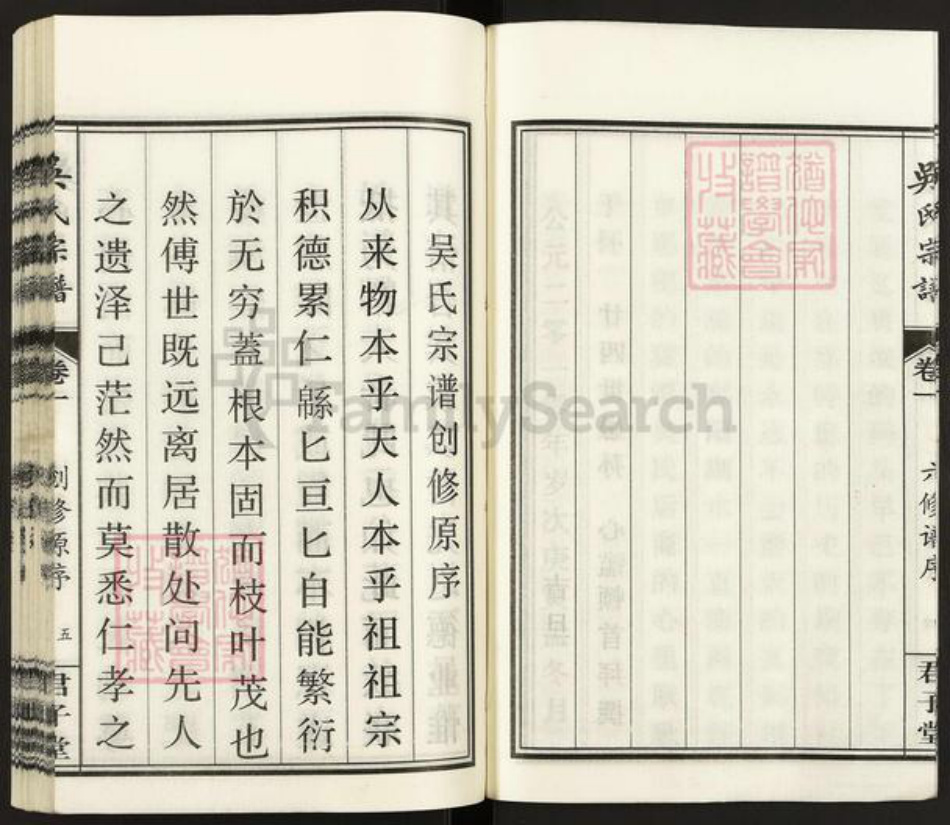 吳氏宗譜
卷一
六修谱序
君子堂
猶他家
譜學會
收藏
吴氏宗谱创修原序
从来物本乎天人本乎祖祖宗
积德累仁緜匕亘匕自能繁衍
於无穷蓋根本固而枝叶茂也
然傅世既远离居散处问先人
之遗泽己茫然而莫悉仁孝之
吴氏宗譜
卷一
创修原序
五
君子堂
猶他家
譜學會
收藏
FamilySearch